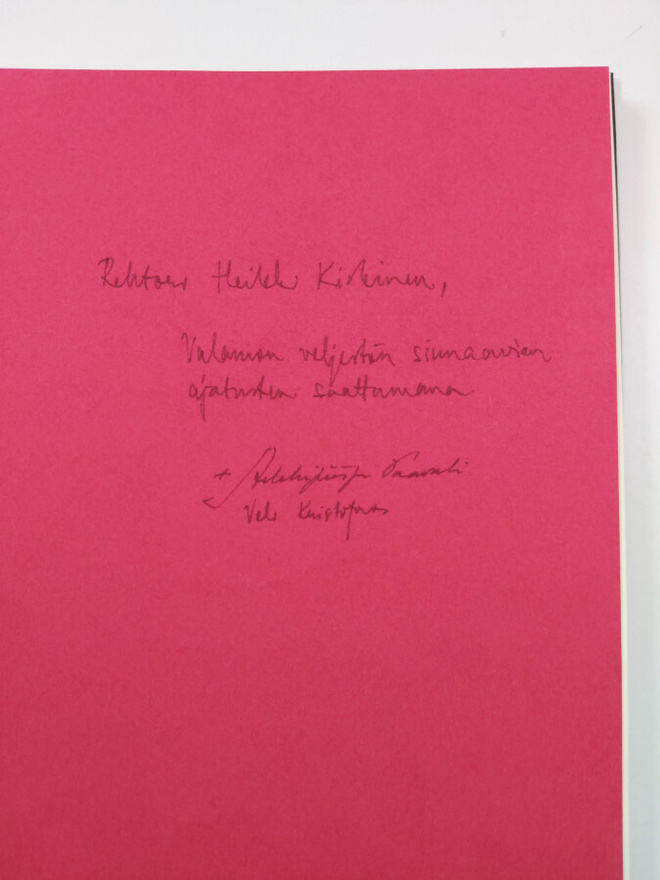 Rehtori Heikki Kirkinen,
Valamon veljestön siunaavien
ajatusten saattamana
+ Arkkipiispa Paavali
Veli Kristoforos